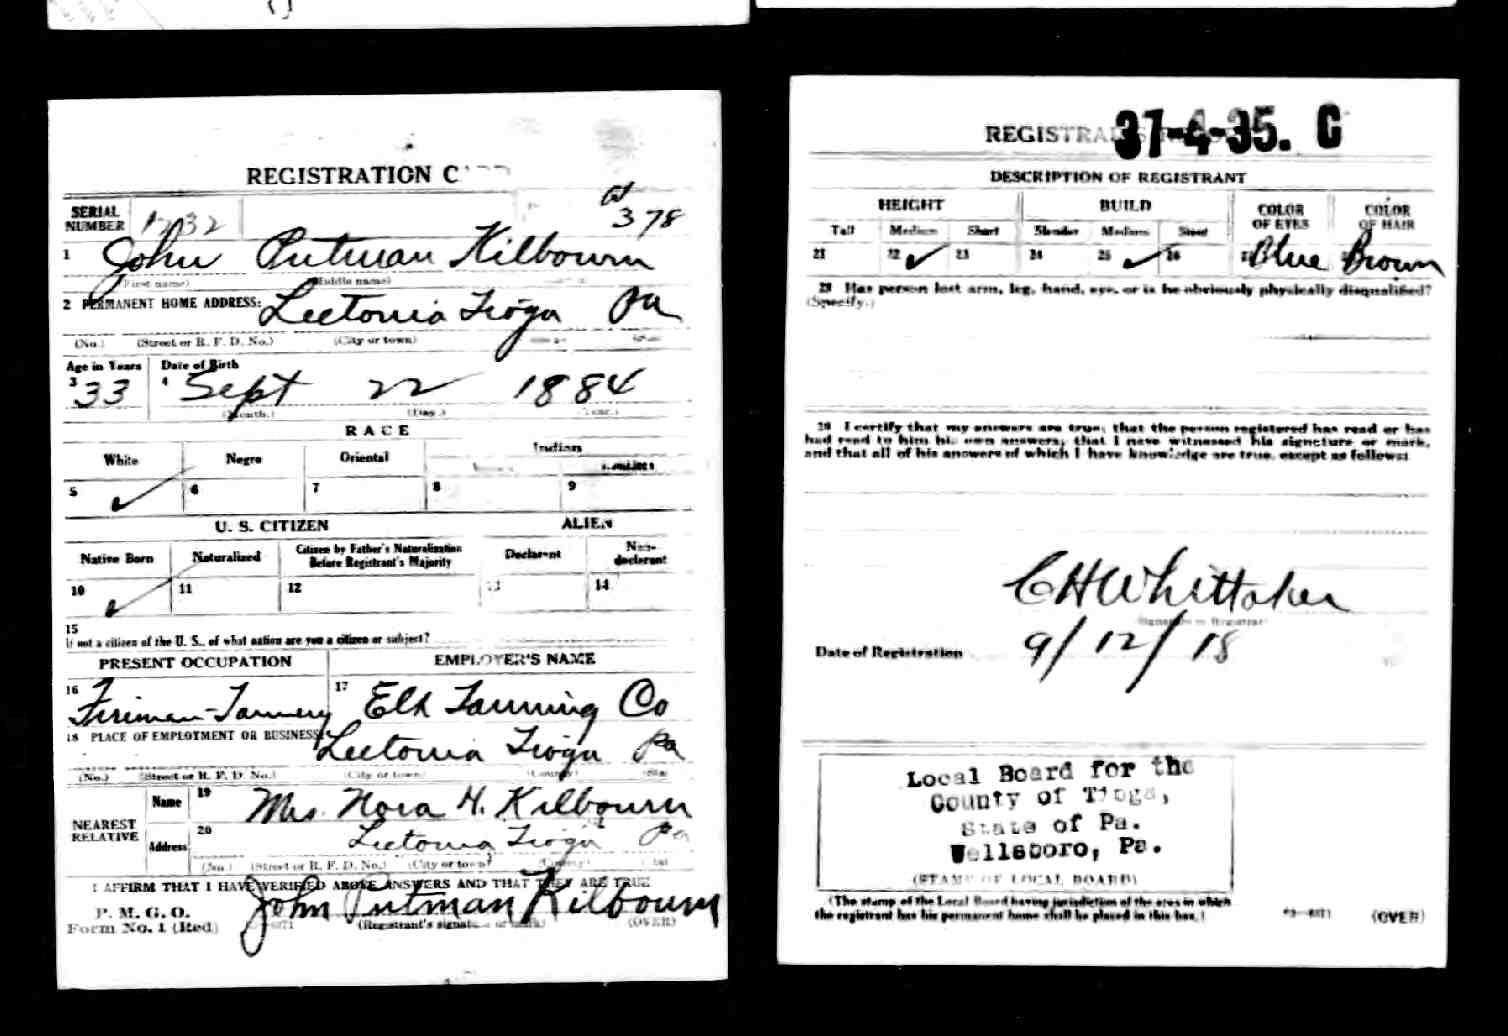 REGISTRATION C
SERIAL NUMBER
378
1 John Putman Kilbourn
(First name) (Middle name)
2 PERMANENT HOME ADDRESS: Leetonia Tioga Pa
(No.) (Street or R. F. D. No.) (City or town)
Age in Years Date of Birth
3 33 4 Sept 22 1884
(Month.) (Day.) (Year.)
RACE
White Negro Oriental Indian
5 ✓ 6 7 8 9
U. S. CITIZEN ALIEN
Native Born Naturalized Citizen by Father's Naturalization Before Registrant's Majority Declarant Non-declarant
10 ✓ 11 12 13 14
15
If not a citizen of the U. S., of what nation are you a citizen or subject?
PRESENT OCCUPATION EMPLOYER'S NAME
16 Firiman-Tannery 17 Elk Tanning Co
18 PLACE OF EMPLOYMENT OR BUSINESS: Leetonia Tioga Pa
(No.) (Street or R. F. D. No.) (City or town) (County)
NEAREST RELATIVE
Name 19 Mrs. Nora H. Kilbourn
Address 20 Leetonia Tioga Pa
(No.) (Street or R. F. D. No.) (City or town) (County)
I AFFIRM THAT I HAVE VERIFIED ABOVE ANSWERS AND THAT THEY ARE TRUE
P. M. G. O.
Form No. 1 (Red) John Putman Kilbourn
(Registrant's signature or mark) (OVER)
REGISTRA 37-4-35. C
DESCRIPTION OF REGISTRANT
HEIGHT BUILD COLOR OF EYES COLOR OF HAIR
Tall Medium Short Slender Medium Stout
21 22 ✓ 23 24 25 ✓ 26 Blue Brown
29 Has person lost arm, leg, hand, eye, or is he obviously physically disqualified?
(Specify.)
30 I certify that my answers are true; that the person registered has read or has
had read to him his own answers; that I have witnessed his signature or mark,
and that all of his answers of which I have knowledge are true, except as follows:
C H Whittaker
(Signature of Registrar)
Date of Registration 9/12/18
Local Board for the
County of Tioga,
State of Pa.
Wellsboro, Pa.
(STAMP OF LOCAL BOARD)
(The stamp of the Local Board having jurisdiction of the area in which
the registrant has his permanent home shall be placed in this box.)
(OVER)